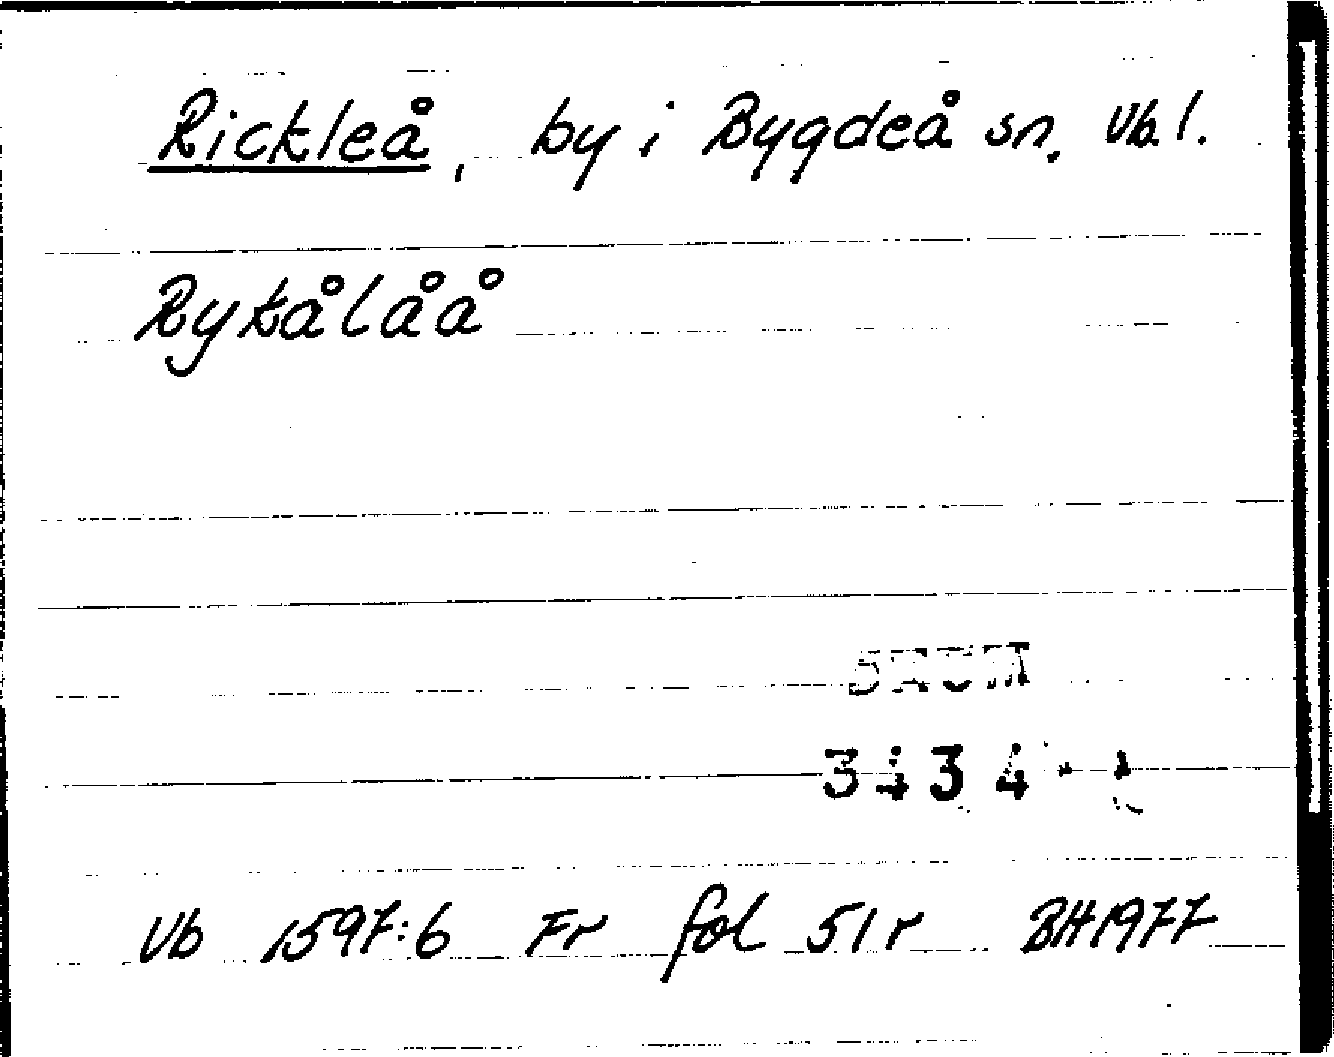 Rickleå, by i Bygdeå sn, Vb. l.
Rykålåå
3434
Vb 1597:6 Fr fol 51 r BH 1977